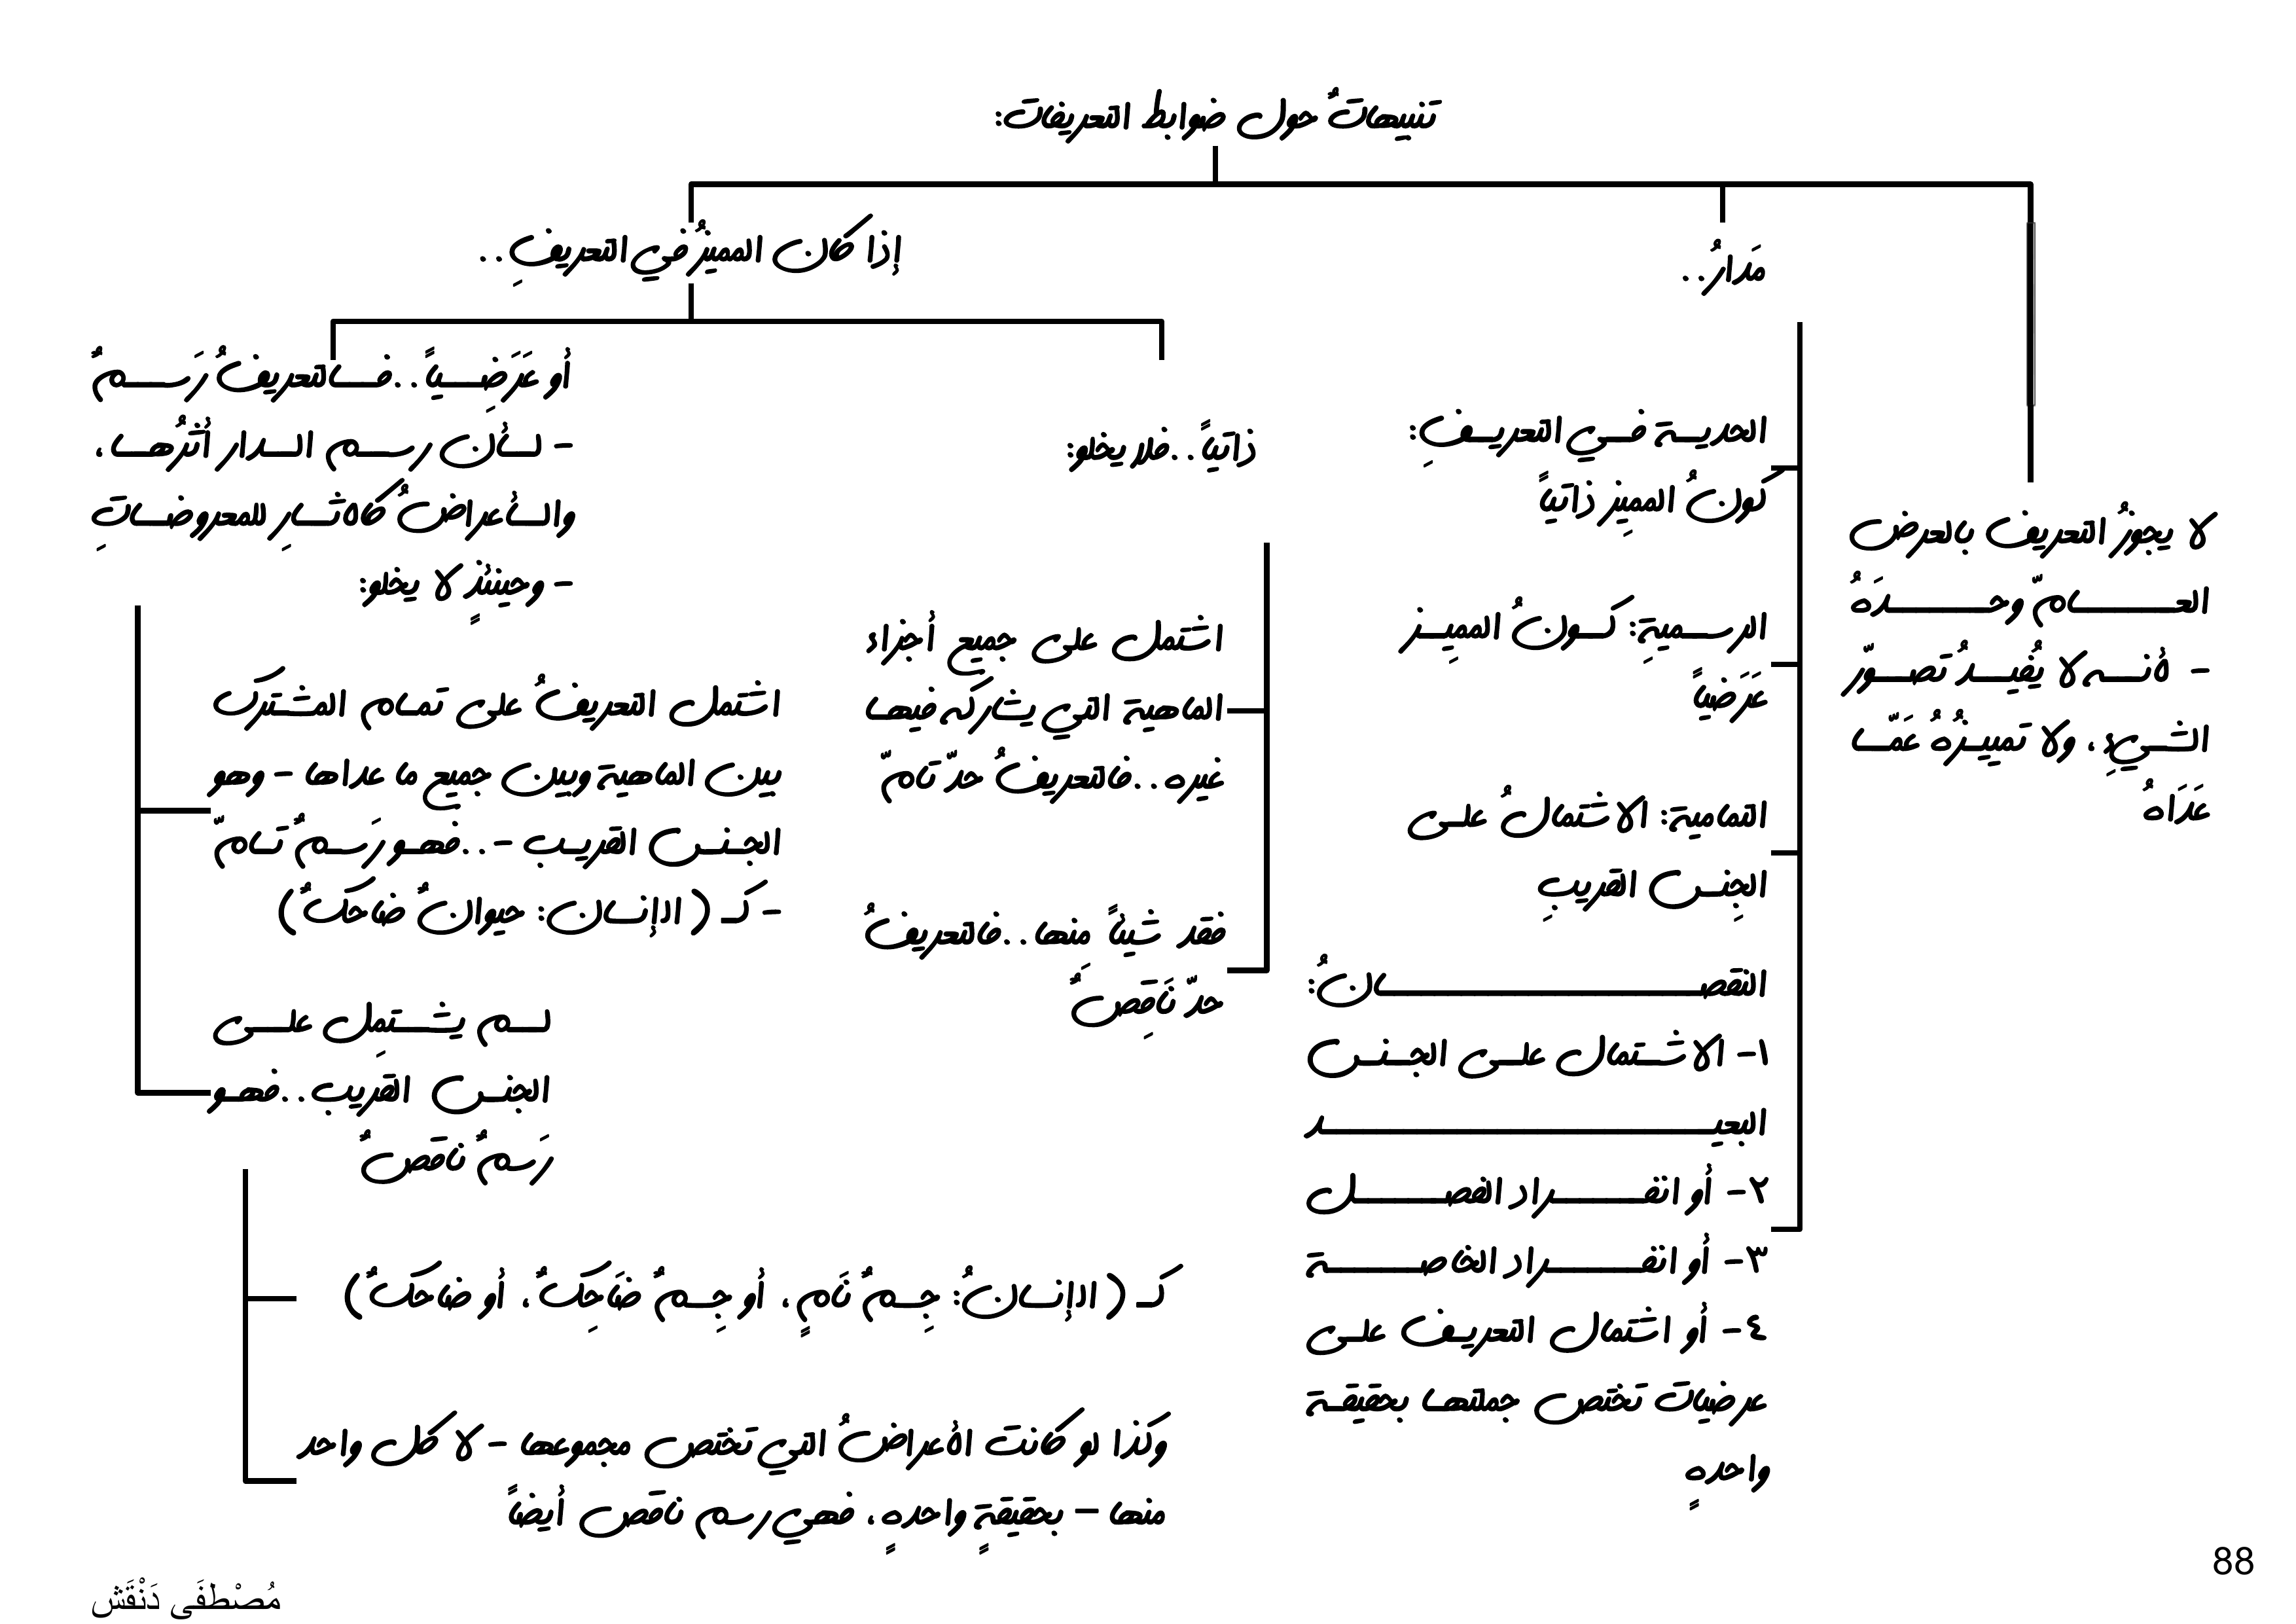 تنبيهاتٌ حول ضوابط التعريفات:
لا يجوزُ التعريف بالعرض
العـام وحـدَهُ
- لأنـه لا يُفيـدُ تصـوّر
الشـيءِ، ولا تمييـزُهُ عَمّـا
عَدَاهُ
مَدارُ..
الحديـة فـي التعريـفِ:
كونُ المميِز ذاتياً
الرسـميةِ: كـونُ المميِـز
عَرَضياً
التمامية: الاشتمالُ علـى
الجِنـس القريبِ
النقصـانُ:
١- الاشـتمال علـى الجـنـس
البعيـد
٢- أو انفـراد الفصـل
٣- أو انفـراد الخاصـة
٤- أو اشتمال التعريـف علـى
عرضيات تختص جملتهـا بحقيقـة
واحدهٍ
إذا كان المميزُ في التعريفِ..
ذاتياً..فلا يخلو:
اشتمل على جميع أجزاء
الماهية التي يشاركه فيهـا
غيره..فالتعريفُ حدّ تامّ
فقد شيئاً مِنها..فالتعريفُ
حدّ نَاقِصٌ
أو عَرَضِـياً..فـالتعريفُ رَسـمٌ
- لـأن رسـم الـدار أثرُهـا،
والـأعراضُ كالآثـارِ للمعروضـاتِ
- وحينئذٍ لا يخلو:
اشتمل التعريفُ على تمـام المشـترك
بين الماهية وبين جميع ما عداها - وهو
الجـنـس القريـب -..فهـو رَسـمٌ تـامّ
- كـ ( الإنسـان: حيوانٌ ضاحكٌ )
لـم يشـتمِل علـى
الجنـس القريب..فهـو
رَسمٌ ناقصٌ
كـ ( الإنسـانُ: جِـسمٌ نَامٍ، أو جِـسمٌ ضَاحِكٌ، أو ضاحكٌ )
وكذا لو كانت الأعراضُ التي تختص مجموعها - لا كل واحد
منها - بحقيقةٍ واحدهٍ، فهي رسم ناقص أيضاً
88
مُصْطَفَى دَنْقَش